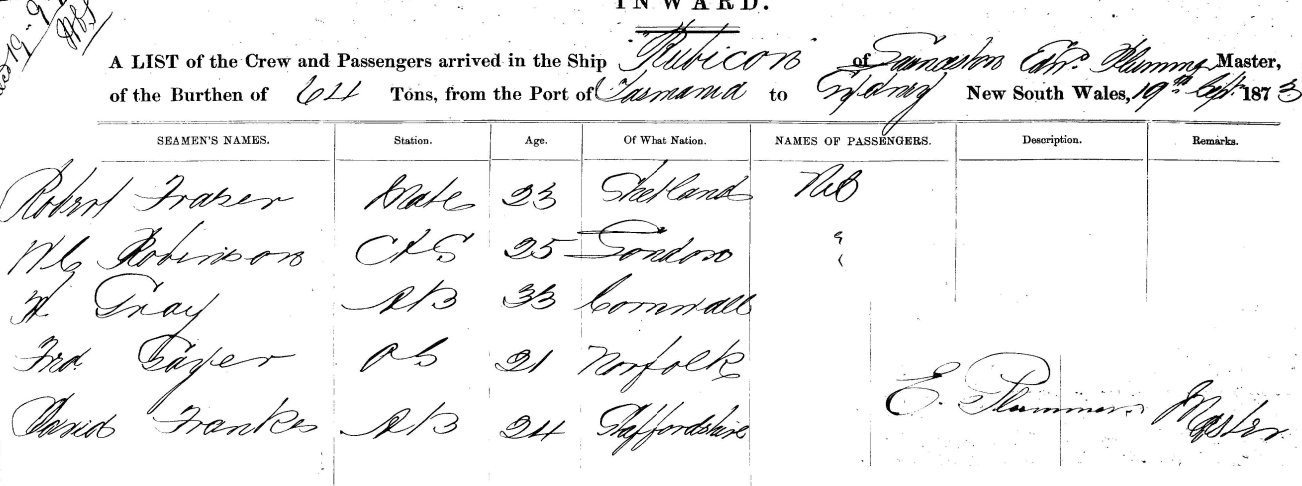 INWARD.
A LIST of the Crew and Passengers arrived in the Ship Rubicon of Launceston Edwd. Plummer Master,
of the Burthen of 64 Tons, from the Port of Tasmania to Sydney New South Wales, 19th Sept. 1873
SEAMEN'S NAMES. Station. Age. Of What Nation. NAMES OF PASSENGERS. Description. Remarks.
Robert Fraser Mate 23 Shetland Nil
Robinson 25 London "
Gray AB 33 Cornwall
Frd. OS 21 Norfolk
David Franks AB 24 Staffordshire
E. Plummer Master